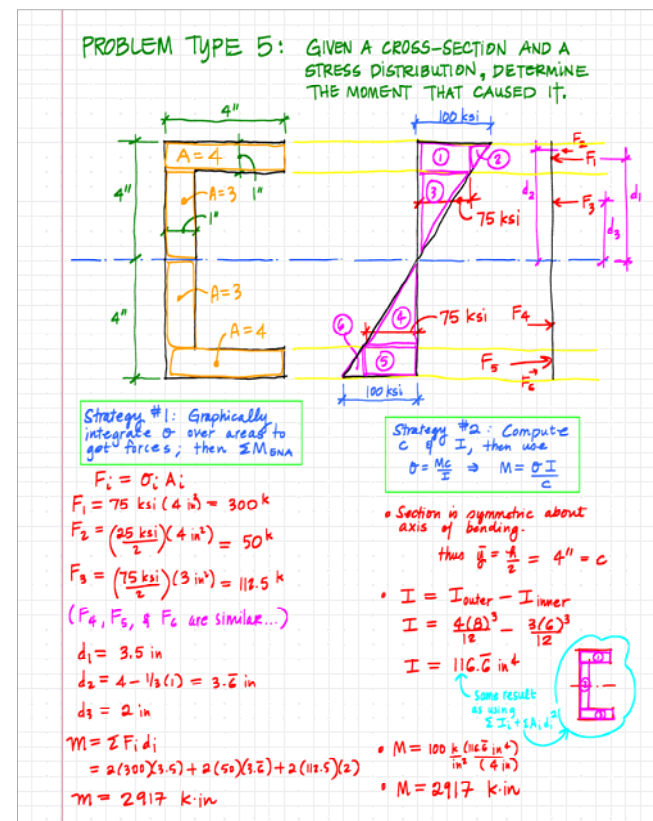 PROBLEM TYPE 5: GIVEN A CROSS-SECTION AND A
STRESS DISTRIBUTION, DETERMINE
THE MOMENT THAT CAUSED IT.
4"
100 ksi
A=4
1"
A=3
1"
4"
4"
A=3
A=4
①
②
③
75 ksi
④
75 ksi
⑤
⑥
100 ksi
F₂
F₁
F₃
d₂
d₁
d₃
F₄
F₅
F₆
Strategy #1: Graphically
integrate σ over areas to
get forces; then ΣM ENA
Fᵢ = σᵢ Aᵢ
F₁ = 75 ksi (4 in²) = 300 k
F₂ = (25 ksi/2)(4 in²) = 50 k
F₃ = (75 ksi/2)(3 in²) = 112.5 k
(F₄, F₅, & F₆ are similar...)
d₁ = 3.5 in
d₂ = 4 - 1/3(1) = 3.6̅ in
d₃ = 2 in
M = Σ Fᵢ dᵢ
= 2(300)(3.5) + 2(50)(3.6̅) + 2(112.5)(2)
M = 2917 k·in
Strategy #2: Compute
C & I, then use
σ = Mc/I ⇒ M = σI/c
• Section is symmetric about
axis of bending.
thus ȳ = h/2 = 4" = c
• I = I outer - I inner
I = 4(8)³/12 - 3(6)³/12
I = 116.6̅ in⁴
Same result
as using
Σ Iᵢ + ΣAᵢdᵢ²
①
②
③
• M = 100 k/in² (116.6̅ in⁴)/(4 in)
• M = 2917 k·in